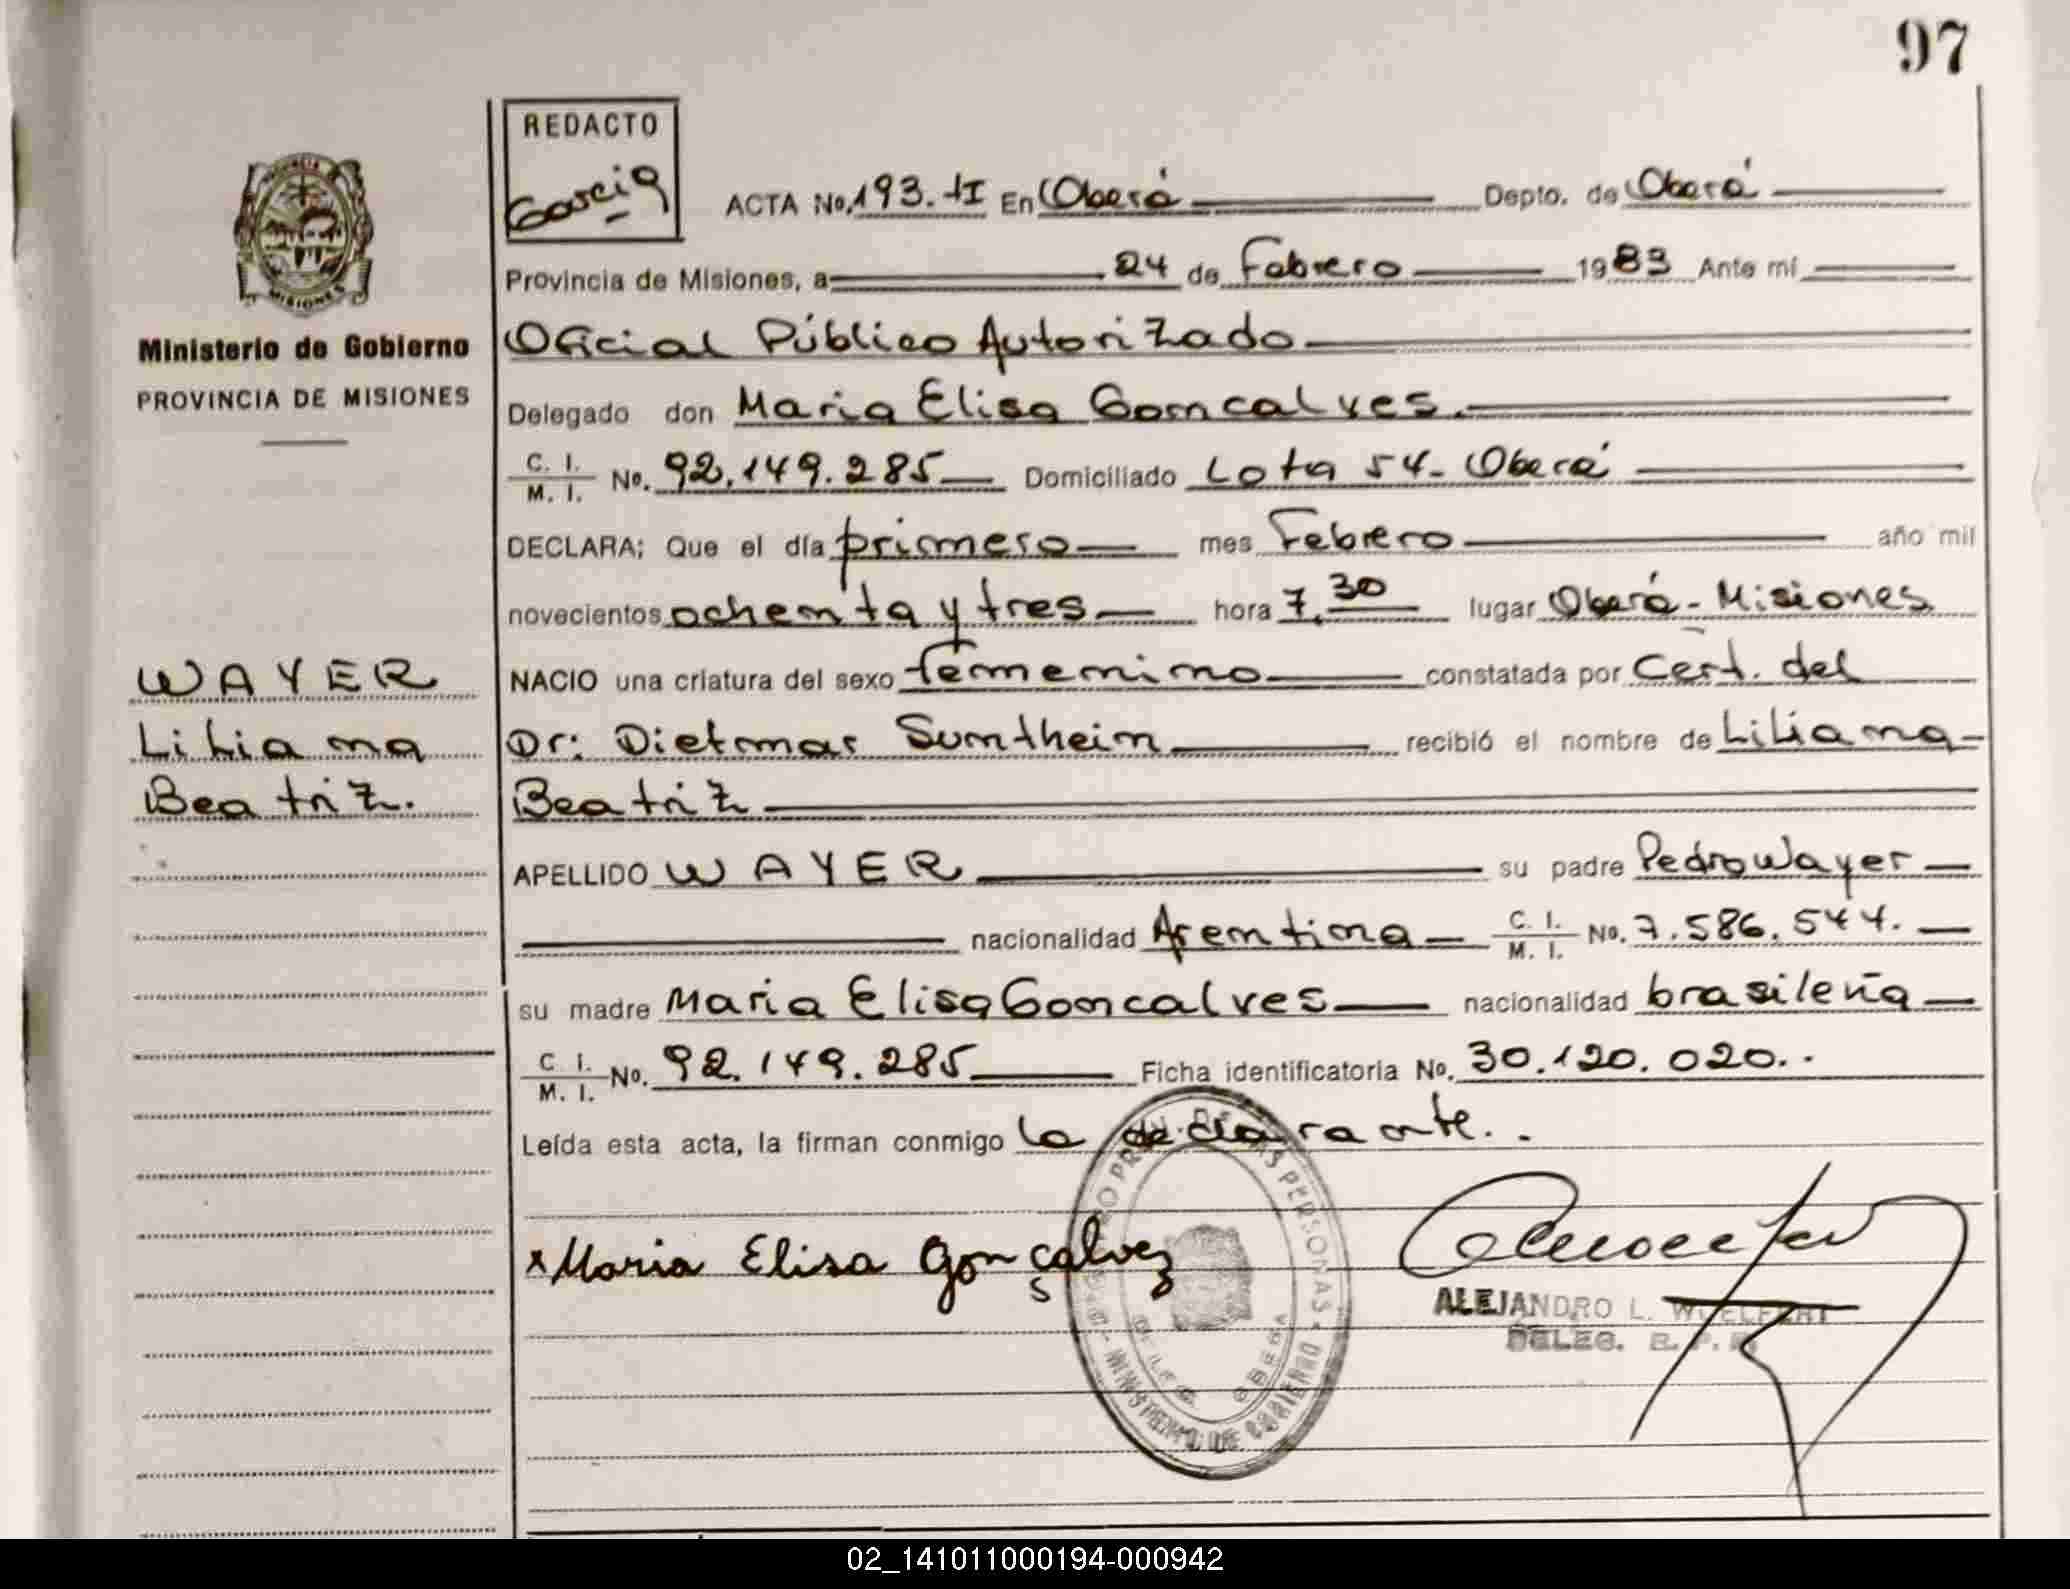 97
REDACTO
Garcia
ACTA No. 193. tI En Oberá Depto. de Oberá
Provincia de Misiones, a 24 de Febrero 1983 Ante mí
Oficial Público Autorizado
Ministerio de Gobierno
PROVINCIA DE MISIONES
MISIONES
Delegado don Maria Elisa Goncalves.
C. I. / M. I. No. 92.149.285 Domiciliado Lote 54- Oberá
DECLARA; Que el día primero mes Febrero año mil
novecientos ochenta y tres hora 7,30 lugar Oberá - Misiones
NACIO una criatura del sexo femenino constatada por Cert. del
Dr: Dietmar Suntheim recibió el nombre de Liliana-
Beatriz
WAYER
Liliana
Beatriz.
APELLIDO WAYER su padre Pedro Wayer
nacionalidad Arentina C. I. / M. I. No. 7.586.544.
su madre Maria Elisa Goncalves nacionalidad brasileña
C. I. / M. I. No. 92.149.285 Ficha identificatoria No. 30.120.020..
Leída esta acta, la firman conmigo la declarante..
x Maria Elisa Gonçalvez
s
PERSONAS
MINISTERIO DE GOBIERNO
DELEG. OBERA
ALEJANDRO L. WOELFERT
DELEG. R. P. P.
02_141011000194-000942